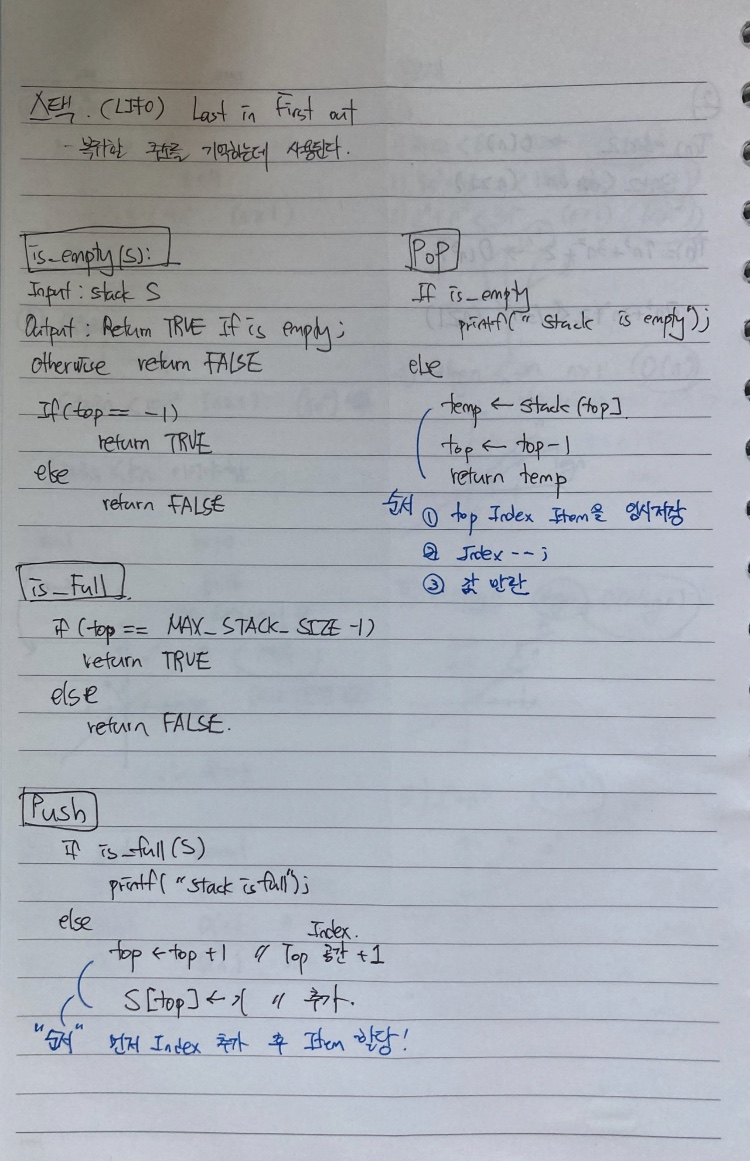 스택. (LIFO) Last in First out
- 복귀할 주소를 기억하는데 사용된다.
is_empty(S):
Input : stack S
Output : Return TRUE If is empty;
otherwise return FALSE
If(top == -1)
return TRUE
else
return FALSE
is_Full
if (top == MAX_STACK_SIZE -1)
return TRUE
else
return FALSE.
Push
if is_full(S)
printf( "stack is full");
else
Index.
top ← top +1 // Top 공간 +1
S[top] ← x // 추가.
"순서" 먼저 Index 추가 후 Item 할당!
PoP
If is_empty
printf(" stack is empty");
else
temp ← stack [top]
top ← top-1
return temp
순서 ① top Index Item을 임시저장
② Index--;
③ 값 반환